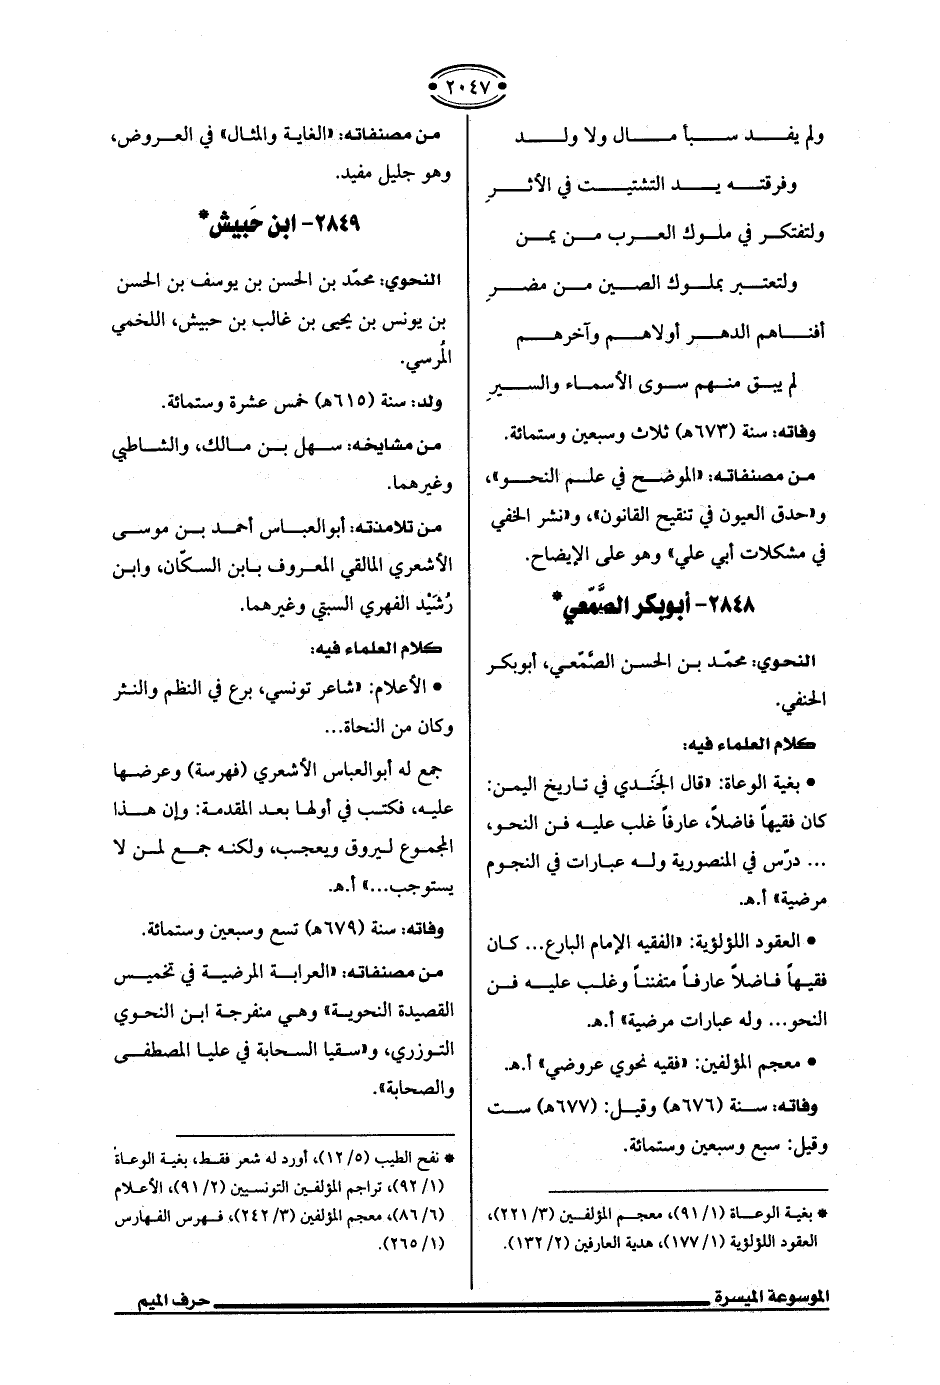 ٢٠٤٧
ولم يفد سبأ مال ولا ولد
وفرقته يد التشتيت في الأثرِ
ولتفتكر في ملوك العرب من يمن
ولتعتبر بملوك الصين من مضرِ
أفناهم الدهر أولاهم وآخرهم
لم يبق منهم سوى الأسماء والسيرِ
وفاته: سنة (٦٧٣هـ) ثلاث وسبعين وستمائة.
من مصنفاته: «الموضح في علم النحو»،
و«حدق العيون في تنقيح القانون»، و«نشر الخفي
في مشكلات أبي علي» وهو على الإيضاح.
٢٨٤٨- أبوبكر الصَّمّعي*
النحوي: محمّد بن الحسن الصَّمّعي، أبوبكر
الحنفي.
كلام العلماء فيه:
• بغية الوعاة: «قال الجَنَدي في تاريخ اليمن:
كان فقيهاً فاضلاً، عارفاً غلب عليه فن النحو،
... درّس في المنصورية وله عبارات في النجوم
مرضية» أ.هـ.
• العقود اللؤلؤية: «الفقيه الإمام البارع... كان
فقيهاً فاضلاً عارفاً متفنناً وغلب عليه فن
النحو... وله عبارات مرضية» أ.هـ.
• معجم المؤلفين: «فقيه نحوي عروضي» أ.هـ.
وفاته: سنة (٦٧٦هـ) وقيل: (٦٧٧هـ) ست
وقيل: سبع وسبعين وستمائة.
* بغية الوعاة (١/ ٩١)، معجم المؤلفين (٣/ ٢٢١)،
العقود اللؤلؤية (١/ ١٧٧)، هدية العارفين (٢/ ١٣٢).
من مصنفاته: «الغاية والمثال» في العروض،
وهو جليل مفيد.
٢٨٤٩- ابن حَبيش*
النحوي: محمّد بن الحسن بن يوسف بن الحسن
بن يونس بن يحيى بن غالب بن حبيش، اللخمي
المُرسي.
ولد: سنة (٦١٥هـ) خمس عشرة وستمائة.
من مشايخه: سهل بن مالك، والشاطبي
وغيرهما.
من تلامذته: أبوالعباس أحمد بن موسى
الأشعري المالقي المعروف بابن السكّان، وابن
رُشَيْد الفهري السبتي وغيرهما.
كلام العلماء فيه:
• الأعلام: «شاعر تونسي، برع في النظم والنثر
وكان من النحاة...
جمع له أبوالعباس الأشعري (فهرسة) وعرضها
عليه، فكتب في أولها بعد المقدمة: وإن هذا
المجموع ليروق ويعجب، ولكنه جمع لمن لا
يستوجب...» أ.هـ.
وفاته: سنة (٦٧٩هـ) تسع وسبعين وستمائة.
من مصنفاته: «العرابة المرضية في تخميس
القصيدة النحوية» وهي منفرجة ابن النحوي
التوزري، و«سقيا السحابة في عليا المصطفى
والصحابة».
* نفح الطيب (٥/ ١٢)، أورد له شعر فقط، بغية الوعاة
(١/ ٩٢)، تراجم المؤلفين التونسيين (٢/ ٩١)، الأعلام
(٦/ ٨٦)، معجم المؤلفين (٣/ ٢٤٢)، فهرس الفهارس
(١/ ٢٦٥).
الموسوعة الميسرة
حرف الميم